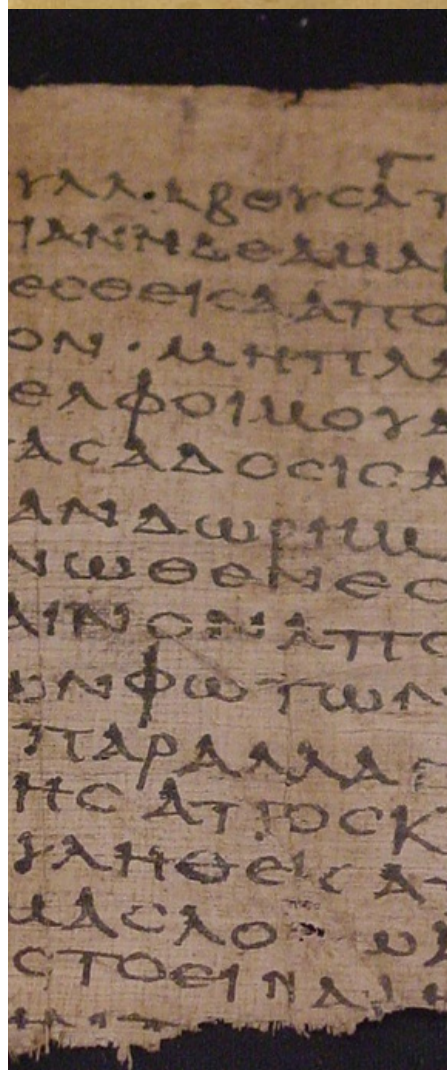 ΥΛΛ·ΑΒΟΥϹΑΤ
ΙΑΝΗΔΕΑΜΑΡ
ΕϹΘΕΙϹΑΑΠΟ
ΟΝ · ΜΗΠΛΑ
ΕΛΦΟΙΜΟΥΑ
ΑϹΑΔΟϹΙϹΑ
ΑΝΔΩΡΗΜ
ΝΩΘΕΝΕϹ
ΑΙΝΟΝΑΠΟ
ΩΝΦΩΤΩΝ
ΠΑΡΑΛΛΑΓ
ΗϹΑΠΟϹΚ
ΥΛΗΘΕΙϹΑΠ
ΜΑϹΛΟ
ϹΤΟΕΙΝΑΙΗ